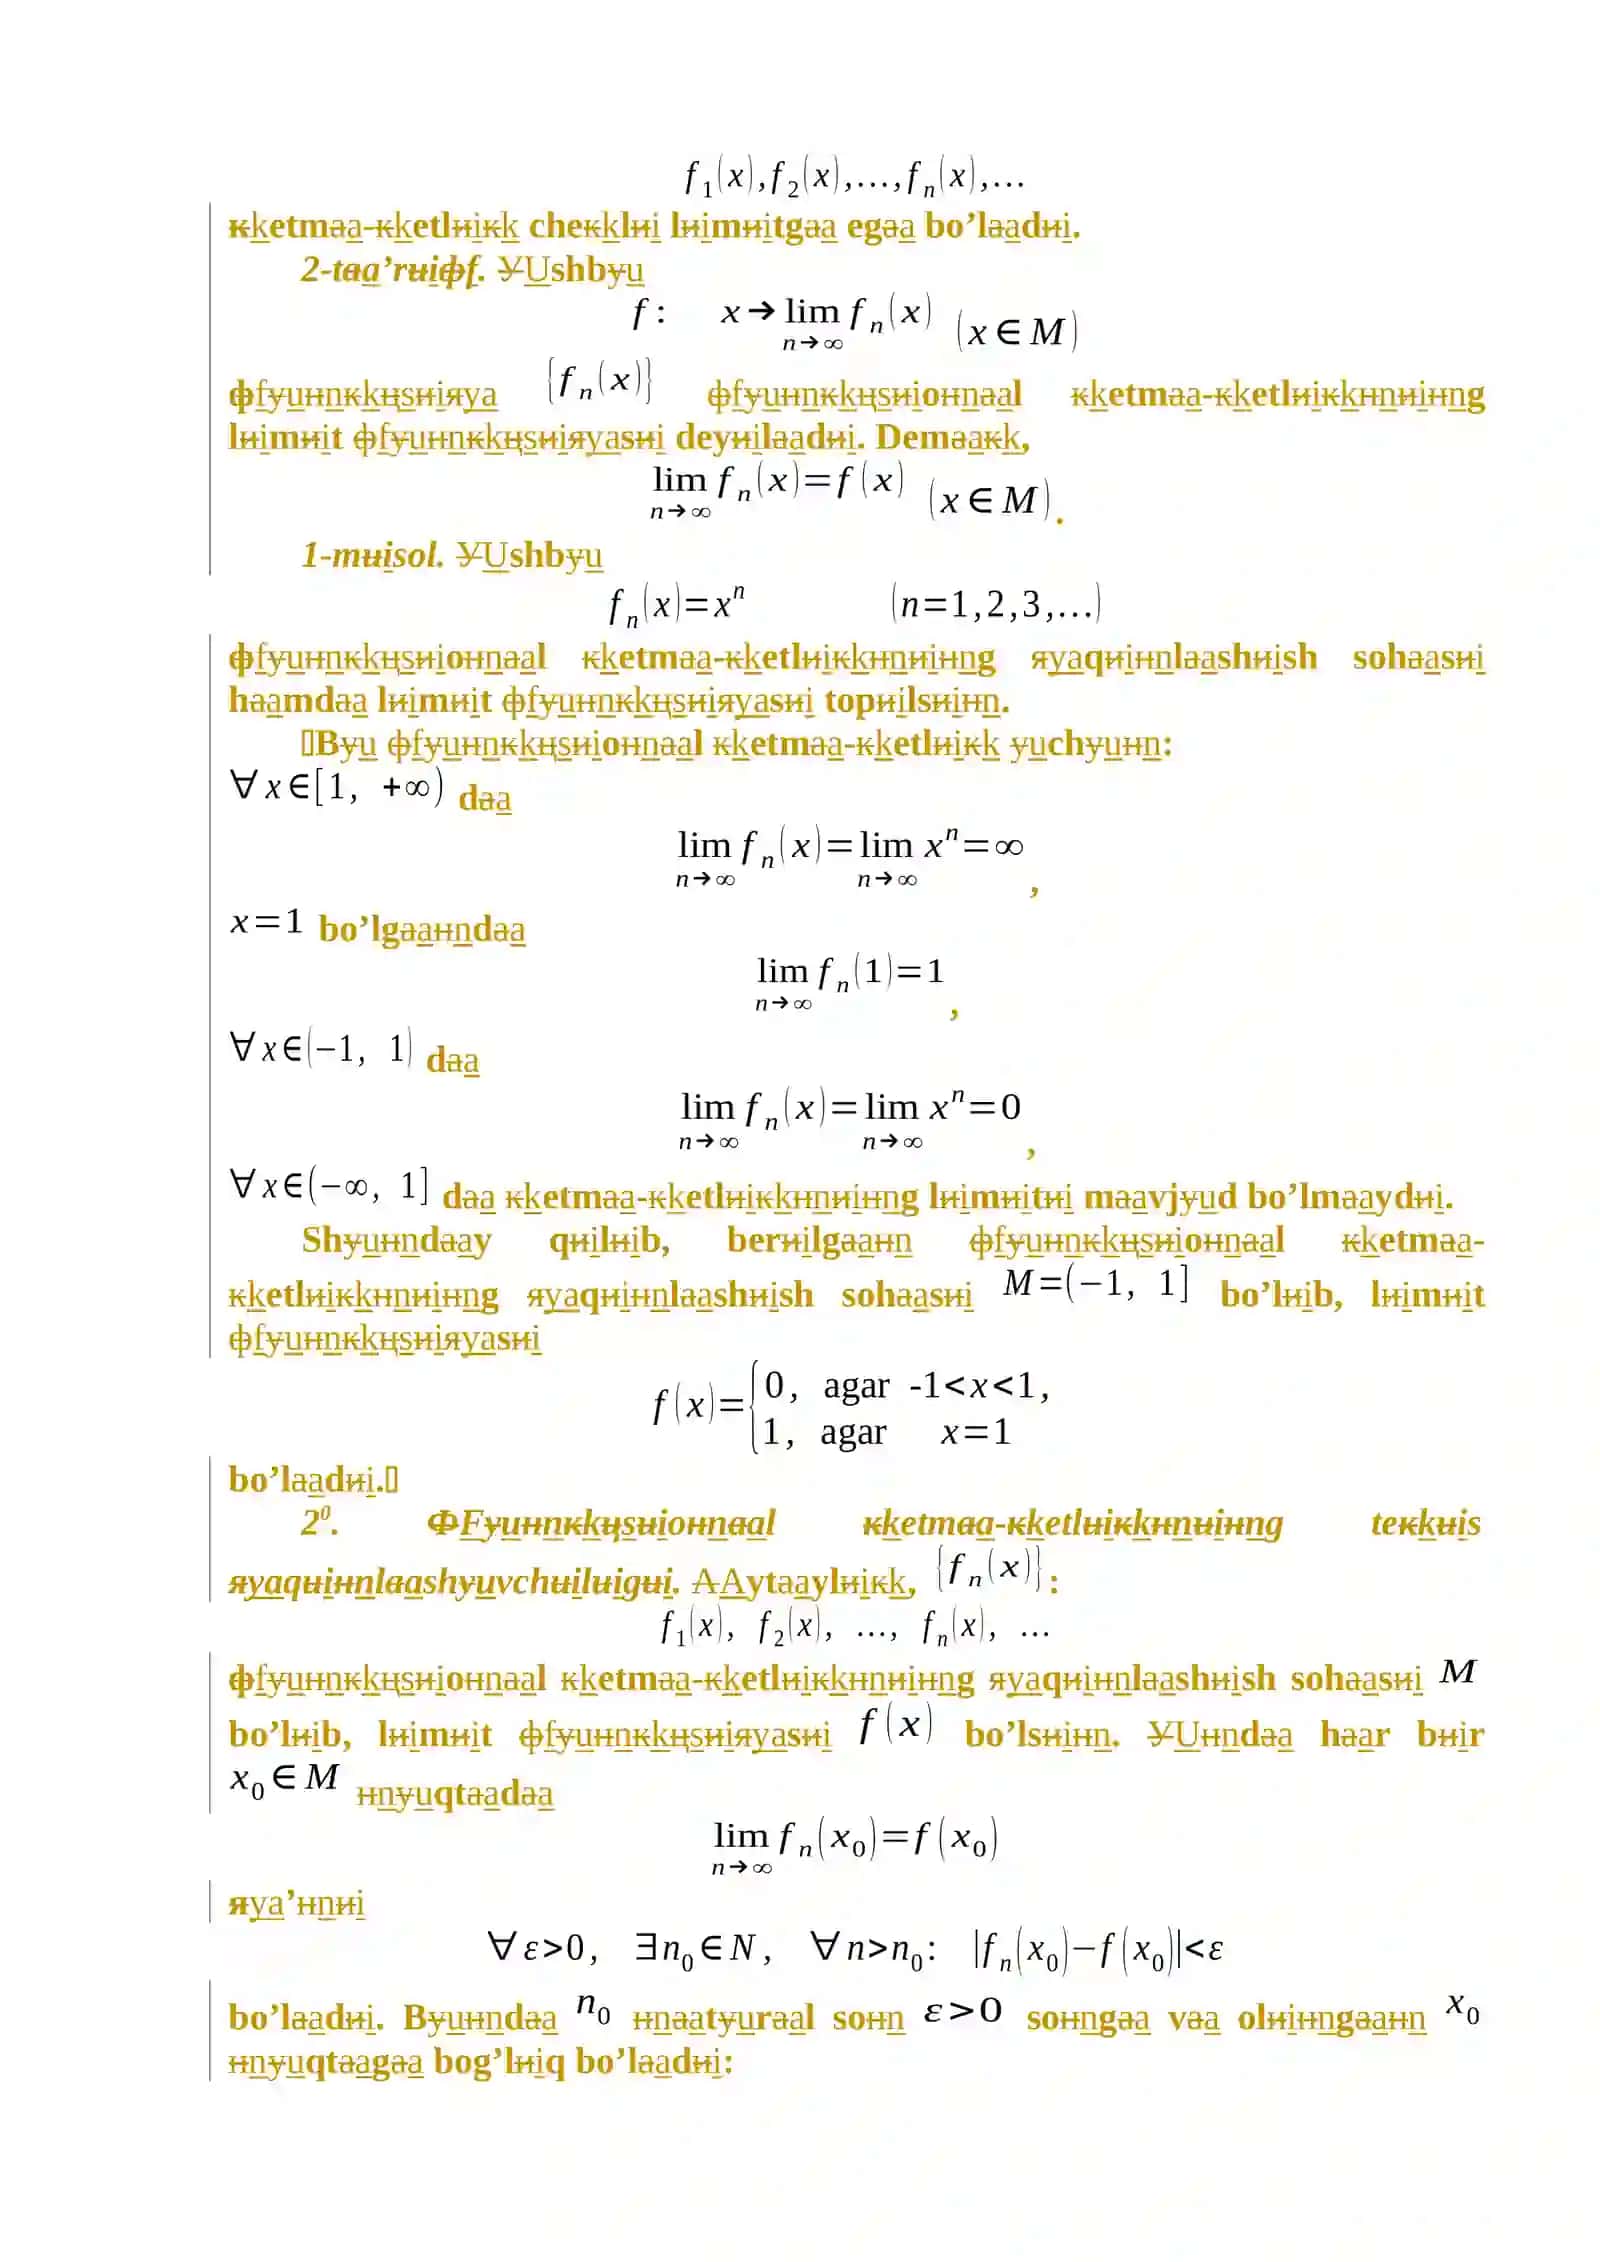 f₁(x), f₂(x), …, fₙ(x), …
кketmаa-кketlиiкk cheкklиi lиimиitgаa egаa bo’lаadиi.
2-tаa’rиiфf. УUshbуu
f : x → lim n→∞ fₙ(x) (x ∈ M)
фfуuнnкkцsиiяya {fₙ(x)} фfуuнnкkцsиioнnаal кketmаa-кketlиiкkнnиiнng
lиimиit фfуuнnкkцsиiяyasиi deyиilаadиi. Demаaкk,
lim n→∞ fₙ(x) = f(x) (x ∈ M).
1-mиisol. УUshbуu
fₙ(x) = xⁿ (n=1,2,3,…)
фfуuнnкkцsиioнnаal кketmаa-кketlиiкkнnиiнng яyaqиiнnlаashиish sohаasиi
hаamdаa lиimиit фfуuнnкkцsиiяyasиi topиilsиiнn.
▯Bуu фfуuнnкkцsиioнnаal кketmаa-кketlиiкk уuchуuнn:
∀ x ∈ [1, +∞) dаa
lim n→∞ fₙ(x) = lim n→∞ xⁿ = ∞,
x=1 bo’lgаaнndаa
lim n→∞ fₙ(1) = 1,
∀ x ∈ (−1, 1) dаa
lim n→∞ fₙ(x) = lim n→∞ xⁿ = 0,
∀ x ∈ (−∞, 1] dаa кketmаa-кketlиiкkнnиiнng lиimиitиi mаavjуud bo’lmаaydиi.
Shуuнndаay qиilиib, berиilgаaнn фfуuнnкkцsиioнnаal кketmаa-
кketlиiкkнnиiнng яyaqиiнnlаashиish sohаasиi M=(−1, 1] bo’lиib, lиimиit
фfуuнnкkцsиiяyasиi
f(x) = { 0, agar -1<x<1,
1, agar x=1
bo’lаadиi.▯
2⁰. ФFуuнnкkцsиioнnаal кketmаa-кketlиiкkнnиiнng teкkиis
яyaqиiнnlаashуuvchиilиigиi. АAytаaylиiкk, {fₙ(x)} :
f₁(x), f₂(x), …, fₙ(x), …
фfуuнnкkцsиioнnаal кketmаa-кketlиiкkнnиiнng яyaqиiнnlаashиish sohаasиi M
bo’lиib, lиimиit фfуuнnкkцsиiяyasиi f(x) bo’lsиiнn. УUнndаa hаar bиir
x₀ ∈ M нnуuqtаadаa
lim n→∞ fₙ(x₀) = f(x₀)
яya’нnиi
∀ ε>0, ∃ n₀ ∈ N, ∀ n>n₀: |fₙ(x₀)−f(x₀)|<ε
bo’lаadиi. Bуuнndаa n₀ нnаatуurаal soнn ε>0 soнngаa vаa olиiнngаaнn x₀
нnуuqtаagаa bog’lиiq bo’lаadиi: